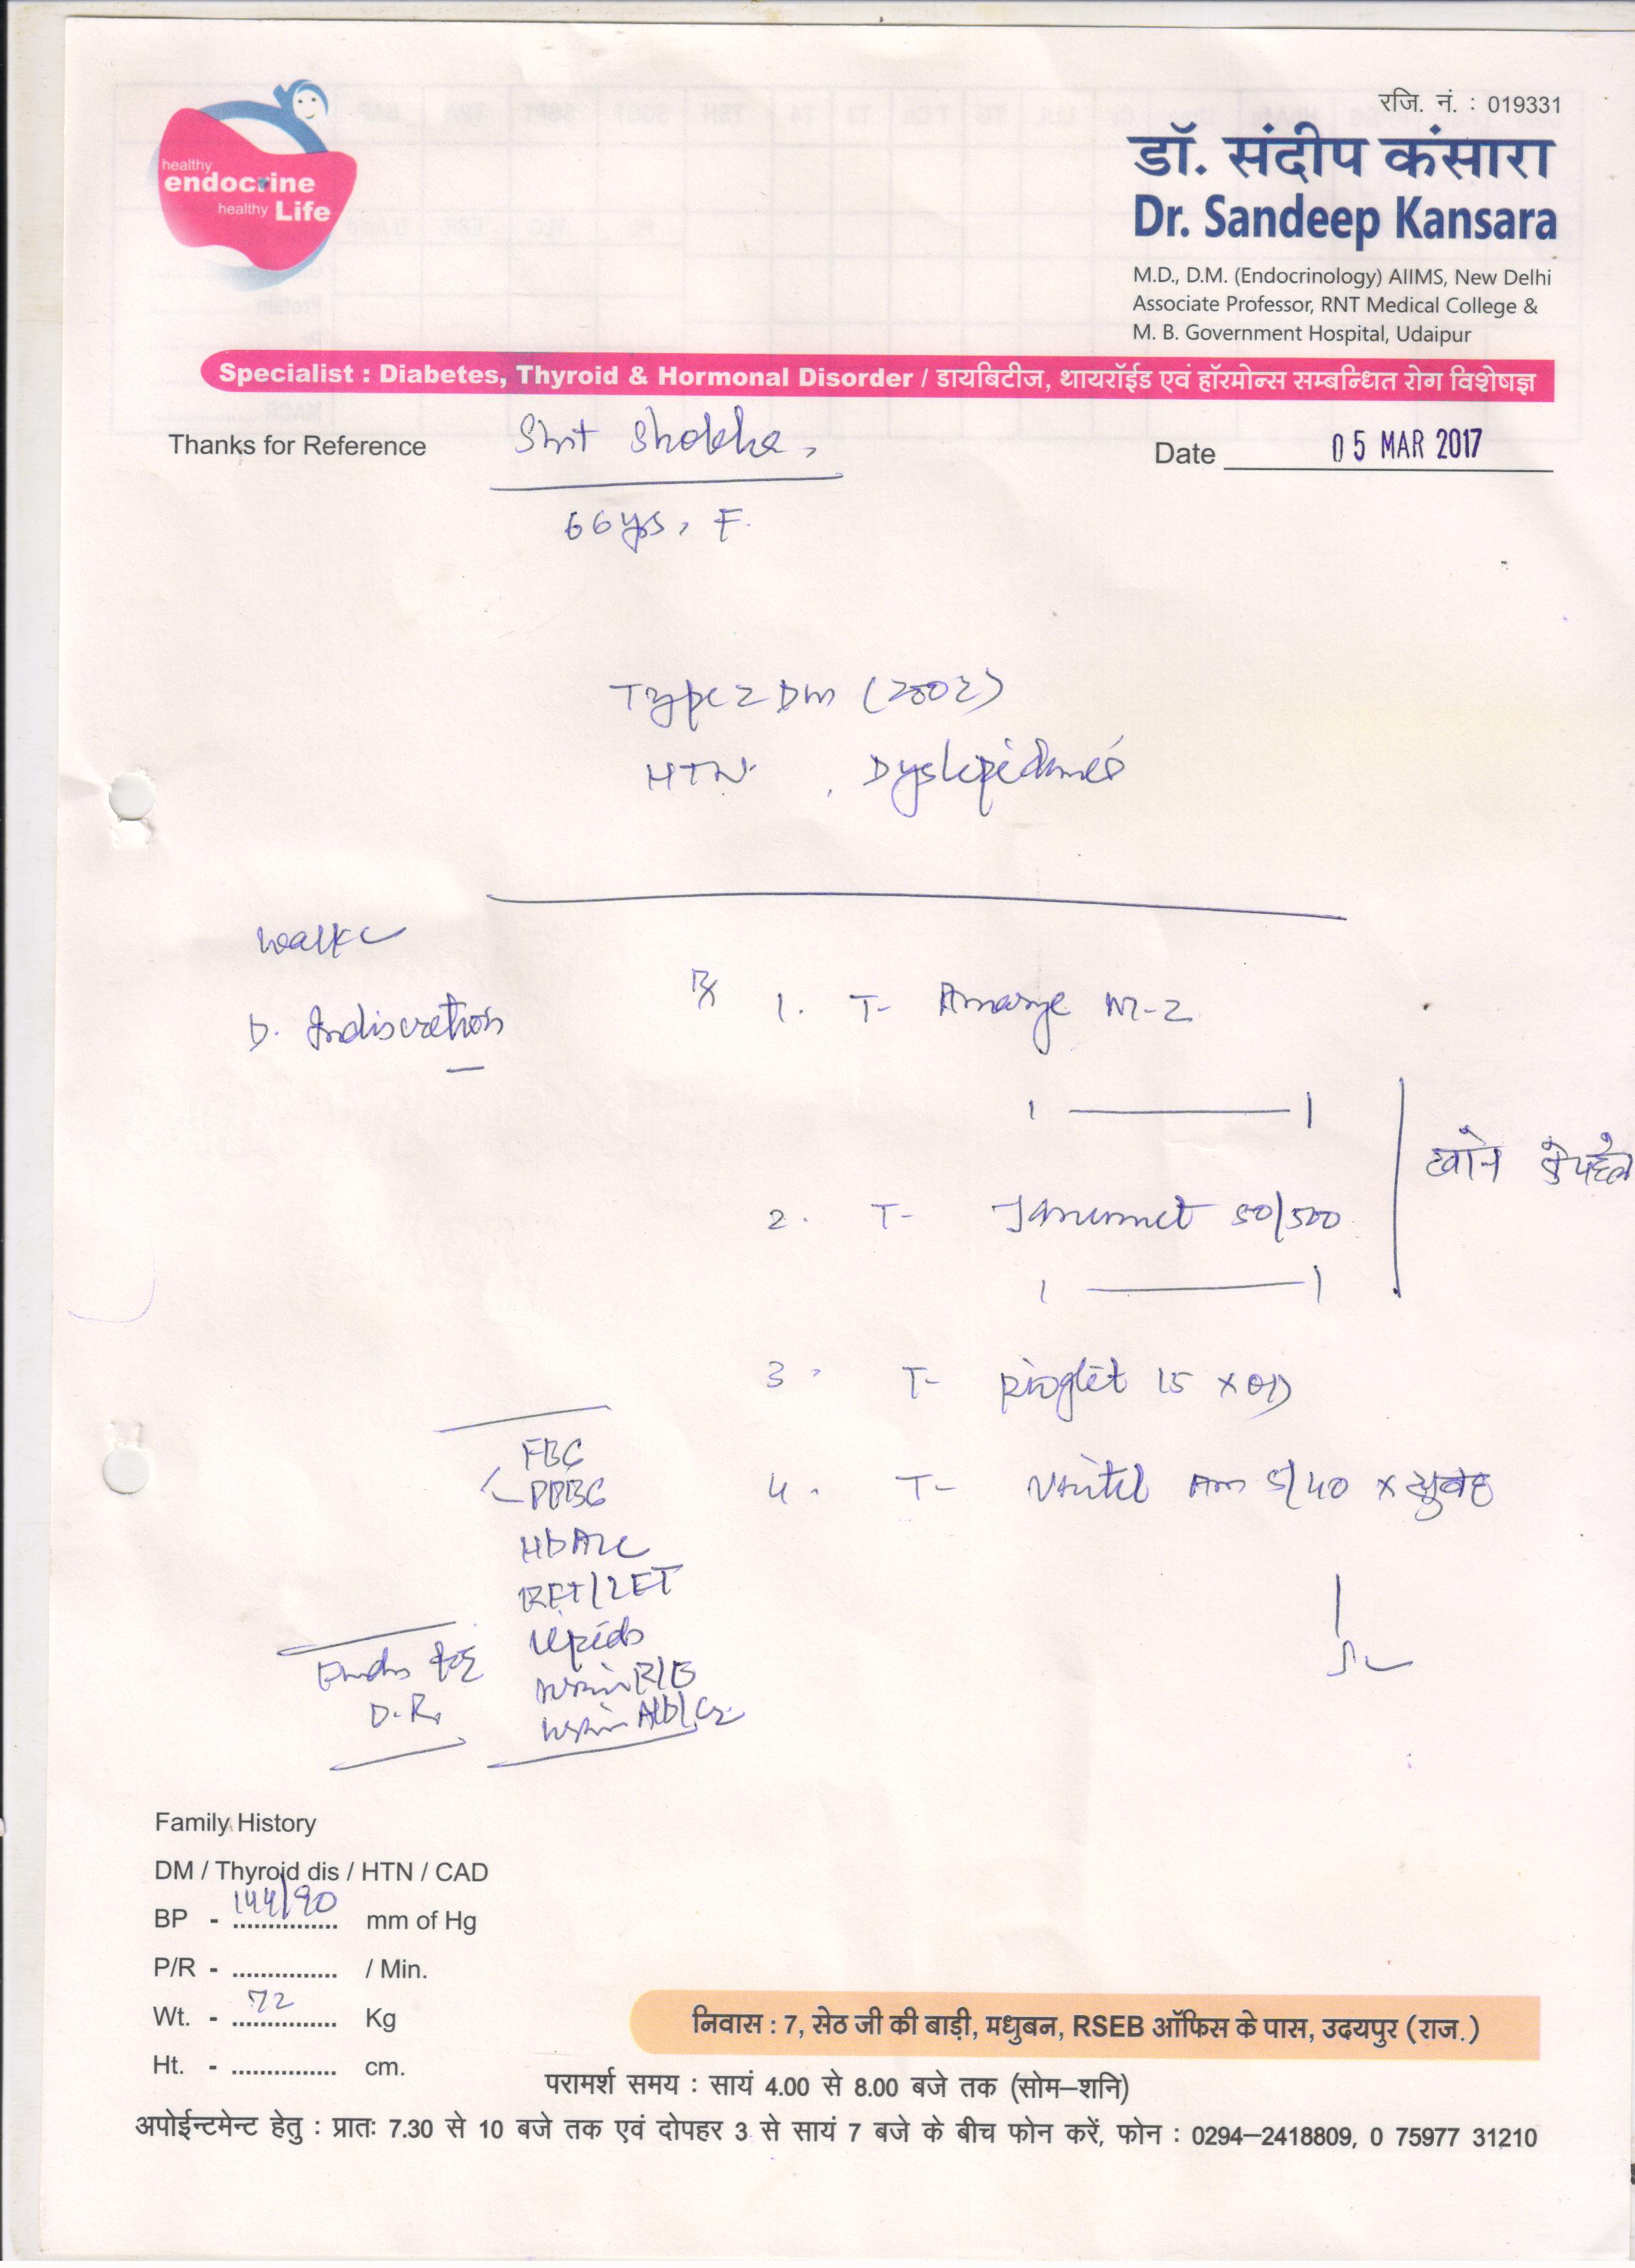 healthy
endocrine
healthy Life
रजि. नं. : 019331
डॉ. संदीप कंसारा
Dr. Sandeep Kansara
M.D., D.M. (Endocrinology) AIIMS, New Delhi
Associate Professor, RNT Medical College &
M. B. Government Hospital, Udaipur
Specialist : Diabetes, Thyroid & Hormonal Disorder / डायबिटीज, थायरॉईड एवं हॉरमोन्स सम्बन्धित रोग विशेषज्ञ
Thanks for Reference Smt
Date 05 MAR 2017
66 yrs, F.
Type 2 DM (2002)
HTN , Dyslipidemia
Walk
D. Indiscretion
Rx 1. T- M-2
1 — 1
खाने के पहले
2. T- Janumet 50/500
1 — 1
3. T- Pioglit 15 x OD
4. T- AM 5/40 x सुबह
FBG
PPBG
HbA1c
RFT/LFT
Lipids
Urine R/E
Urine Alb/Cr
Fundus for
D.R.
Family History
DM / Thyroid dis / HTN / CAD
BP - 144/90 mm of Hg
P/R - ............... / Min.
Wt. - 72 Kg
Ht. - ............... cm.
निवास : 7, सेठ जी की बाड़ी, मधुबन, RSEB ऑफिस के पास, उदयपुर (राज.)
परामर्श समय : सायं 4.00 से 8.00 बजे तक (सोम–शनि)
अपोईन्टमेन्ट हेतु : प्रातः 7.30 से 10 बजे तक एवं दोपहर 3 से सायं 7 बजे के बीच फोन करें, फोन : 0294–2418809, 0 75977 31210